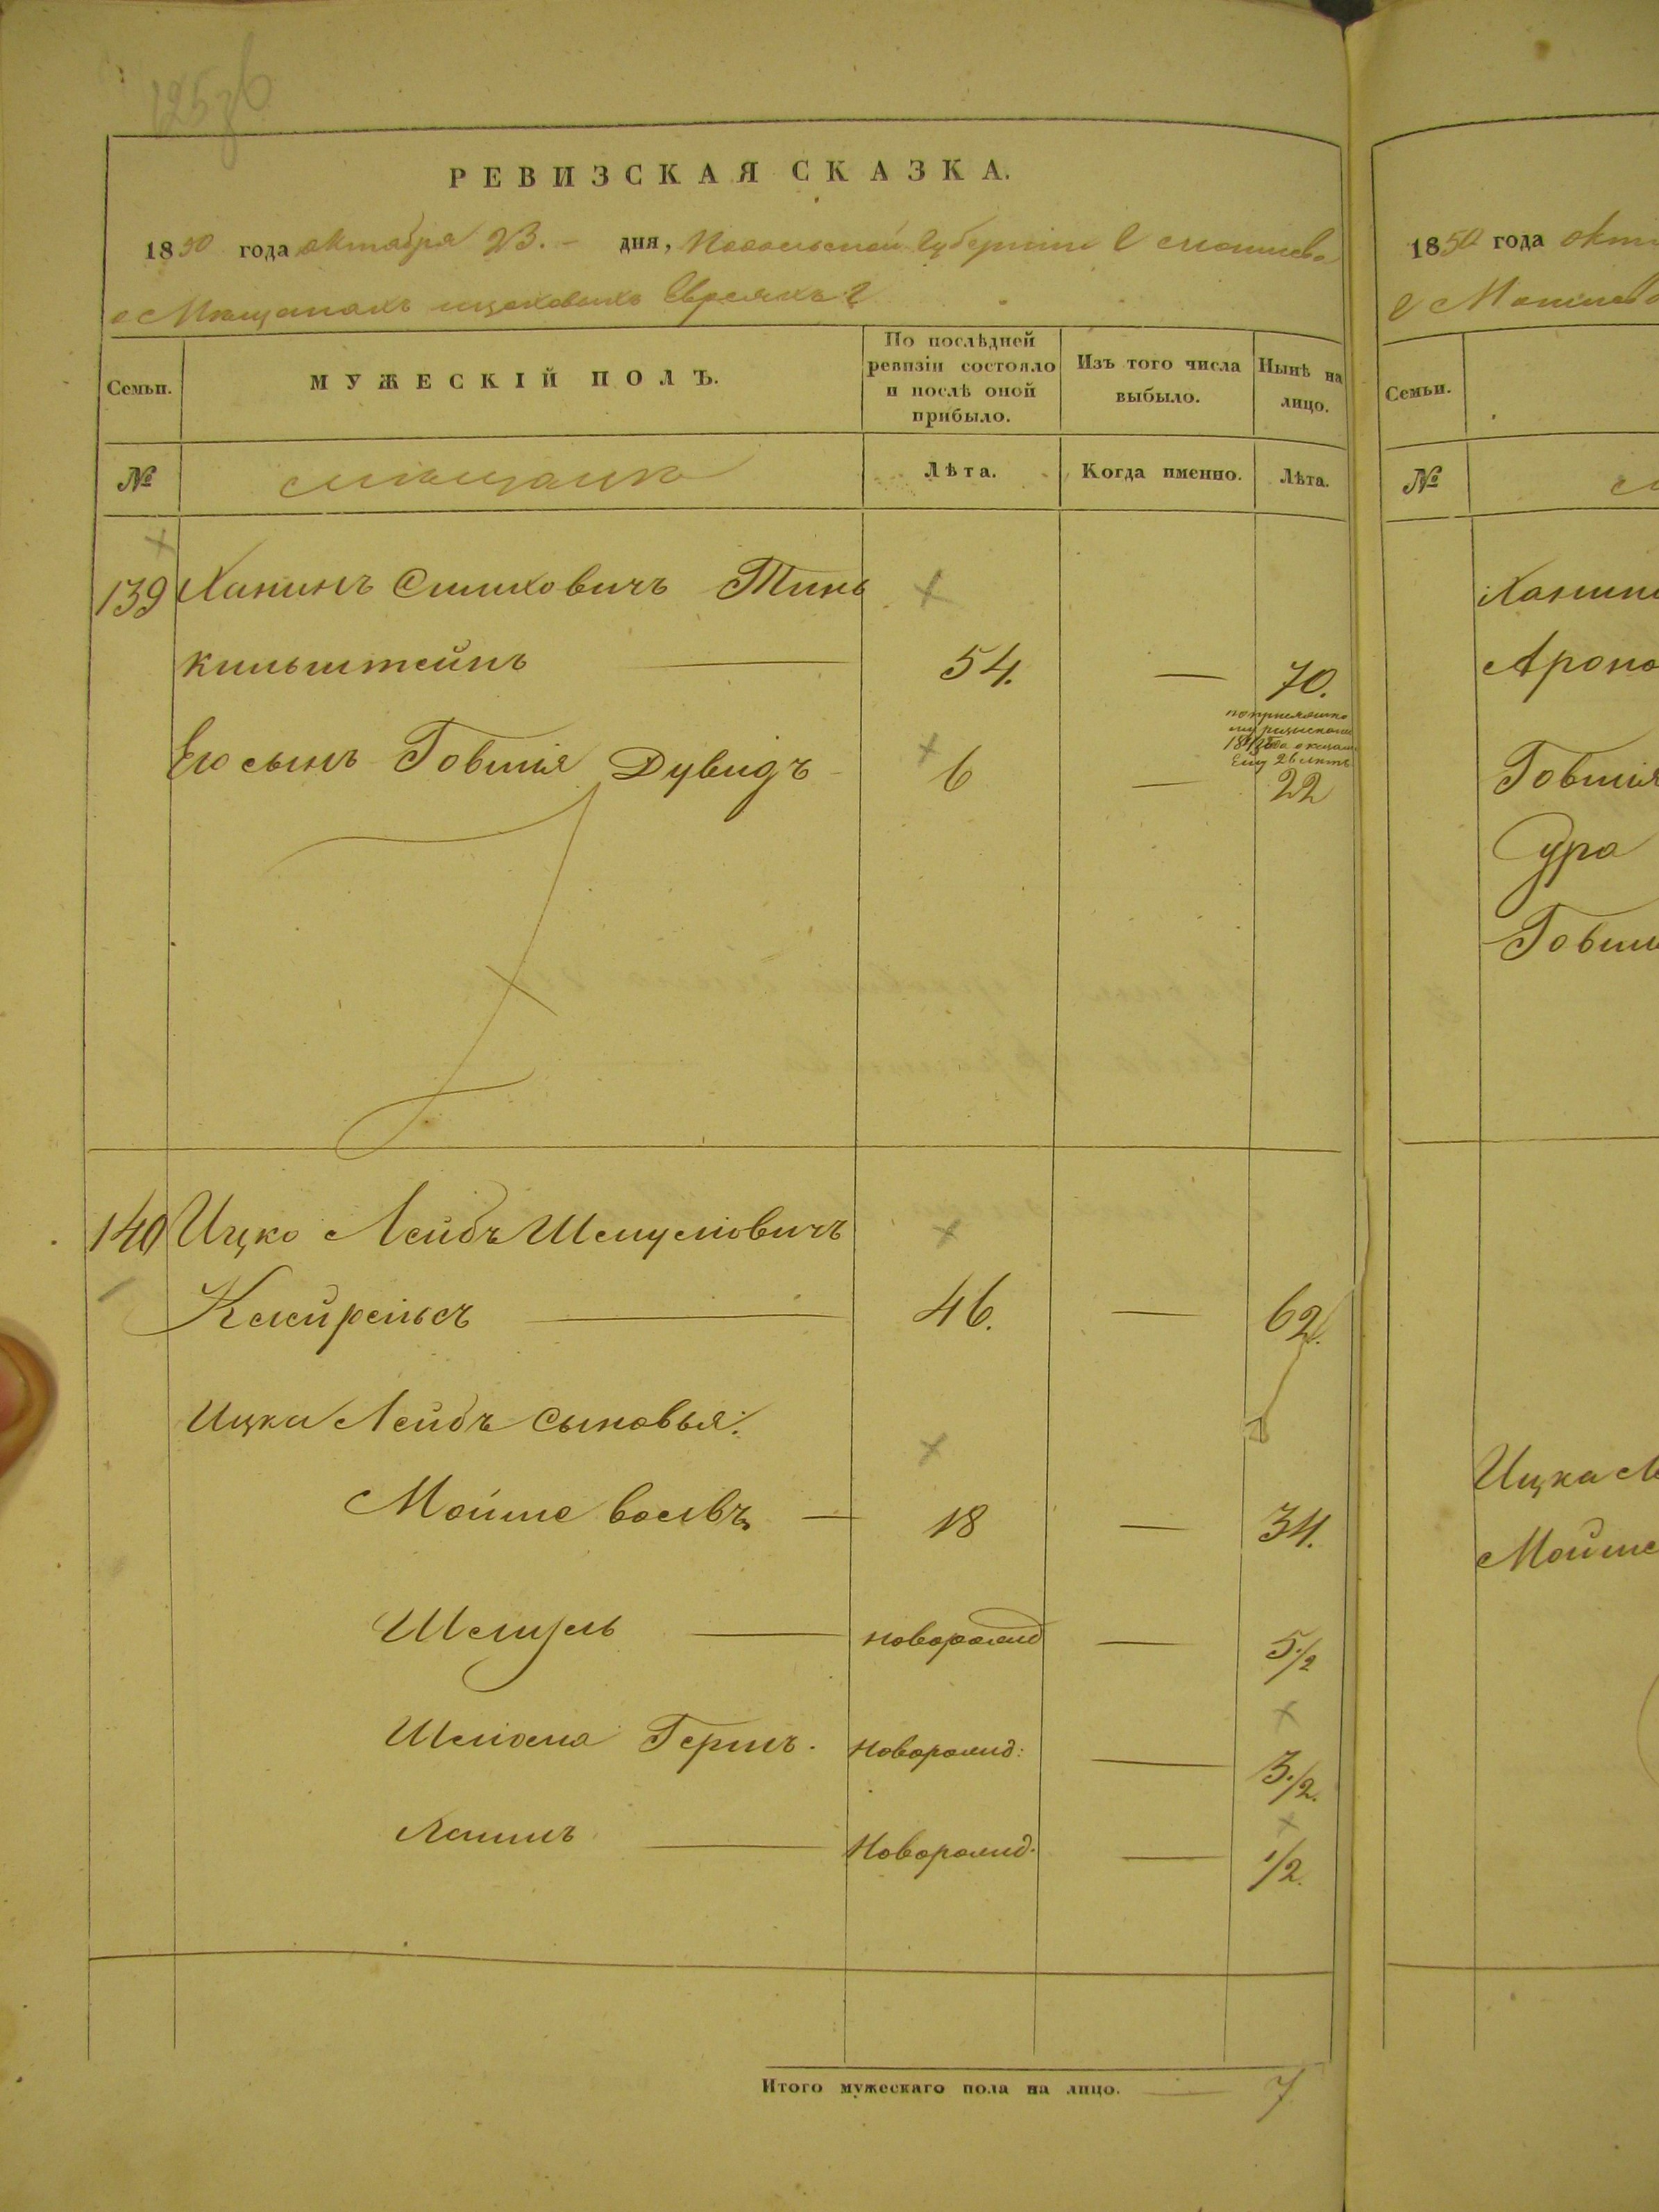 125 об
РЕВИЗСКАЯ СКАЗКА.
1850 года октября 23. – дня, Подольской Губернiи г Могилева
о Мѣщанахъ цеховыхъ Евреяхъ
Семьи.
МУЖЕСКІЙ ПОЛЪ.
По послѣдней ревизіи состояло и послѣ оной прибыло.
Изъ того числа выбыло.
Нынѣ на лицо.
№
мѣщане
Лѣта.
Когда именно.
Лѣта.
139 Ханинъ Симховичъ Тинь
кильштейнъ — 54. — 70.
Его сынъ Говшія Дувидъ 6 — 22
Ему 26 лѣтъ
140 Ицко Лейбъ Шмулiовичъ
46. — 62.
Ицка Лейбъ сыновья:
Мойше Вольвъ — 18 — 34.
Шмуль — новорожд — 5 1/2
Шлiома Герш. Новорожд: — 3 1/2.
Новорожд. — 1/2.
Итого мужескаго пола на лицо. — 7
1850 года окт
г Могилев
Семьи.
№
Ханин
Ароно
Говшія
Сура
Говши
Ицка Л
Мойше